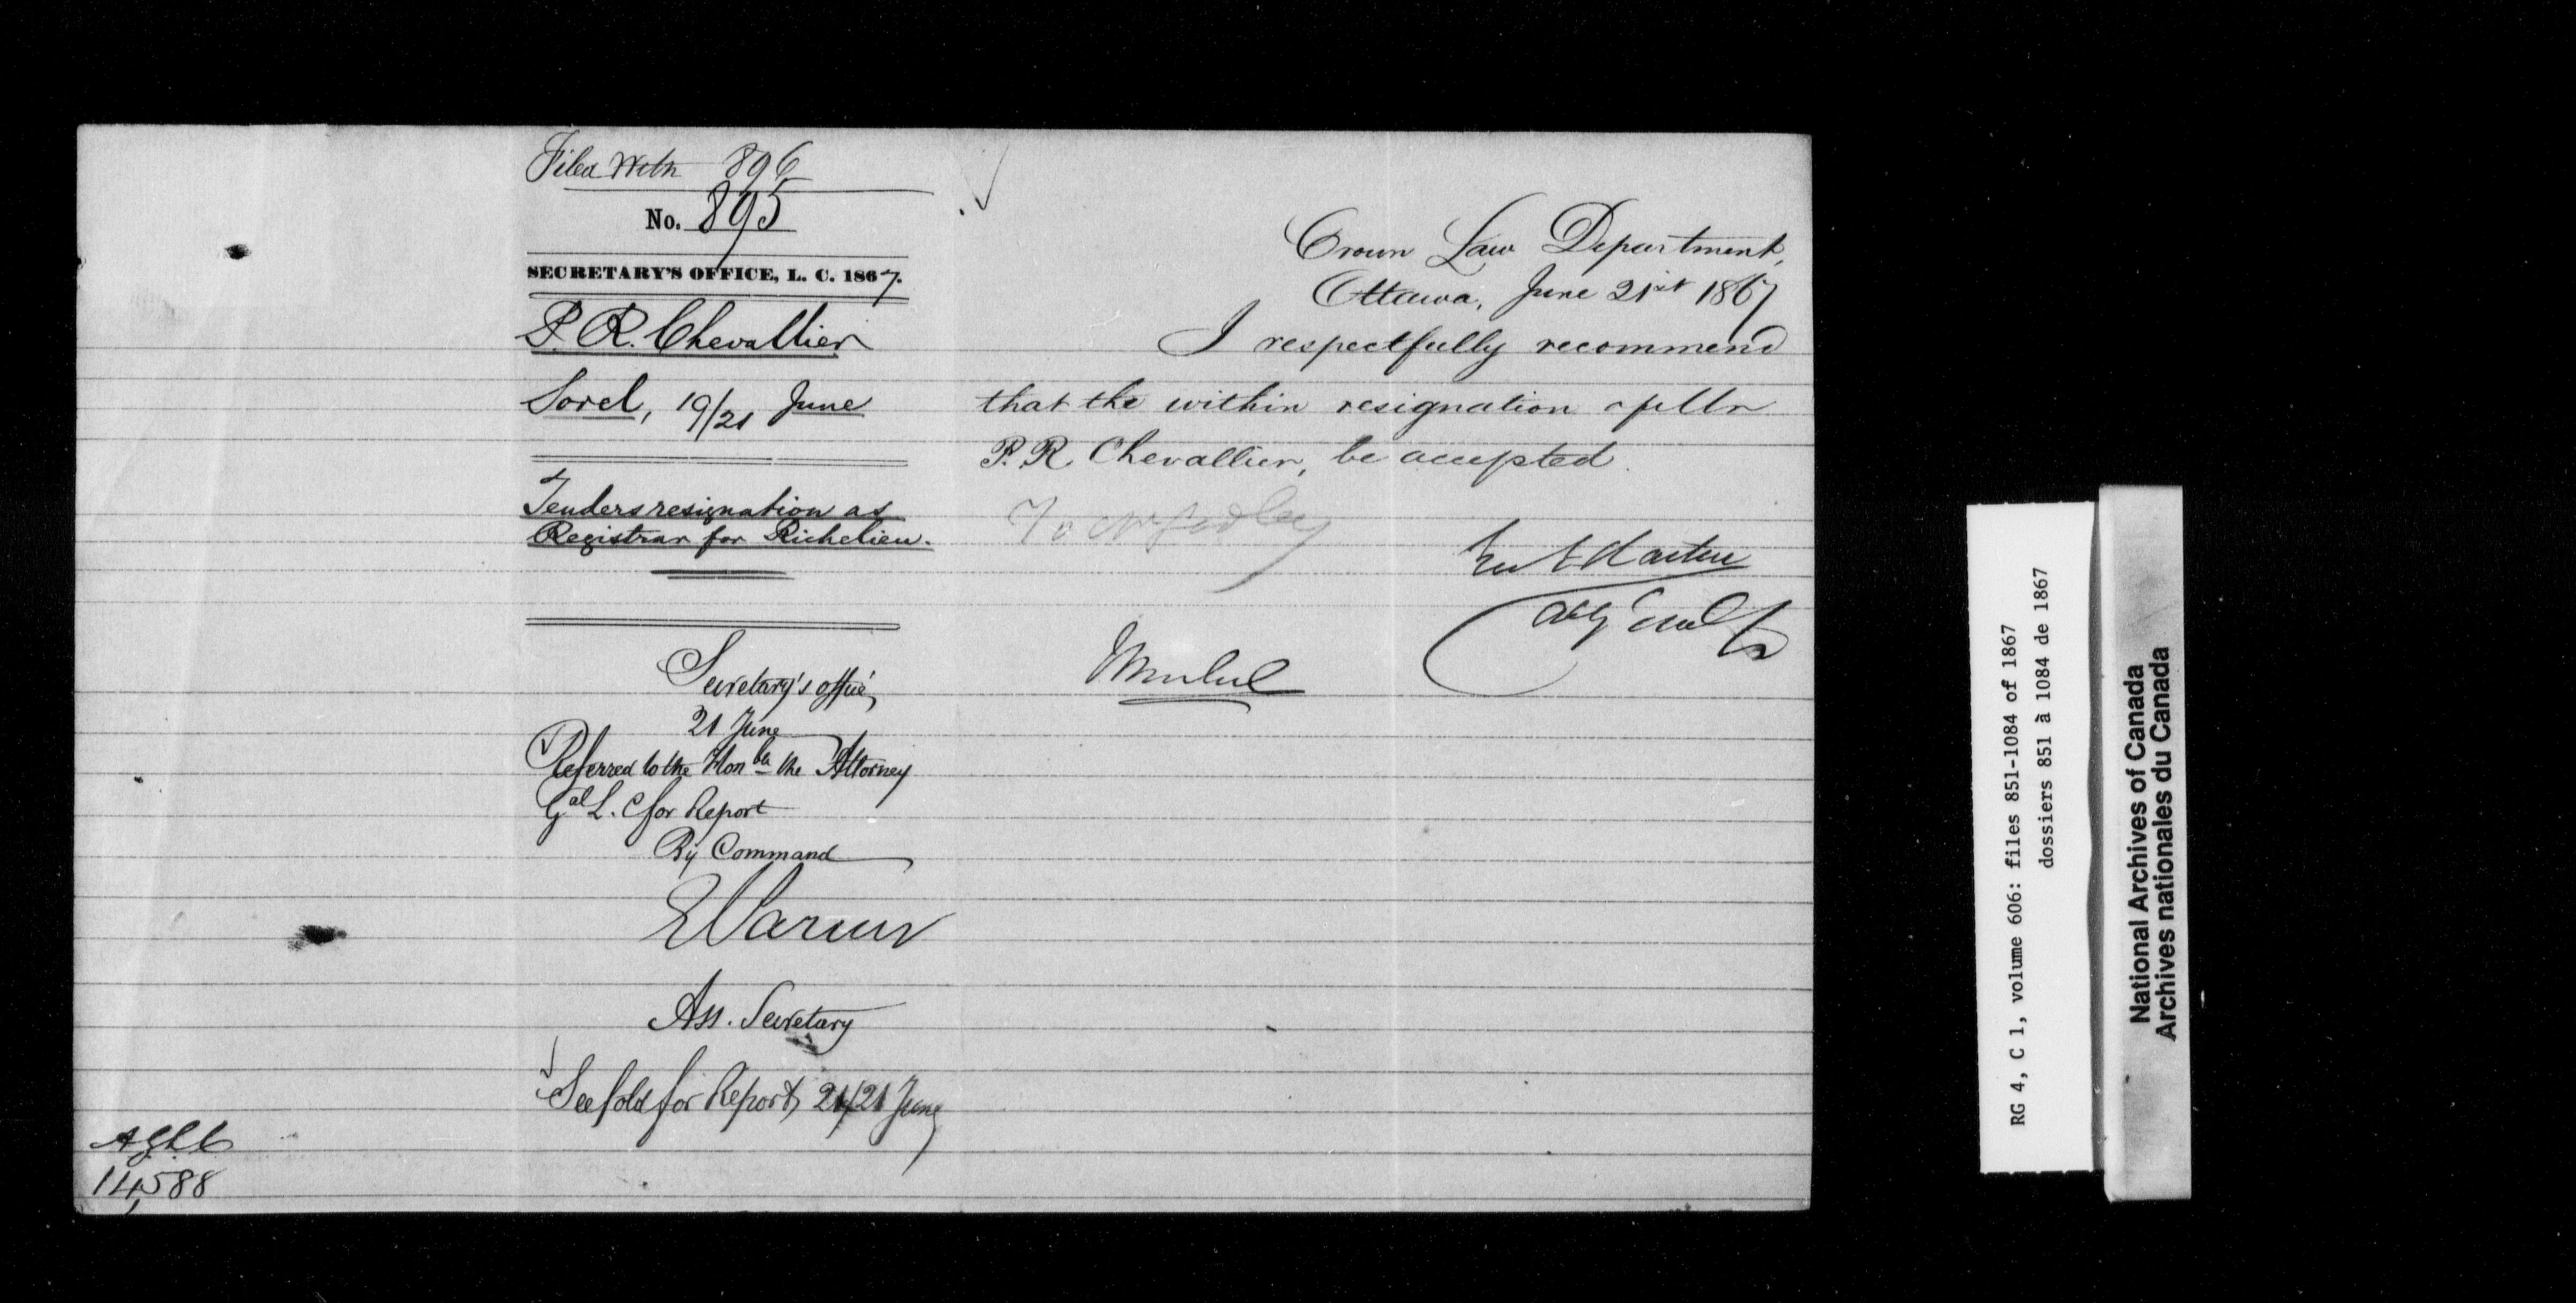 Filed With 896
No. 895
SECRETARY'S OFFICE, L. C. 1867.
P. R. Chevallier
Sorel, 19/21 June
Tenders resignation as
Registrar for Richelieu.
Secretary's office,
21 June
Referred to the Honble the Attorney
Gal L. C for Report
By Command
E Parent
Ass. Secretary
See fold for Report, 21/21 June
A.G.L.C
14,588
Crown Law Department,
Ottawa, June 21st 1867
I respectfully recommend
that the within resignation of Mr
P. R. Chevallier, be accepted.
Geo E Cartier
Atty Genl
RG 4, C 1, volume 606: files 851-1084 of 1867
dossiers 851 à 1084 de 1867
National Archives of Canada
Archives nationales du Canada